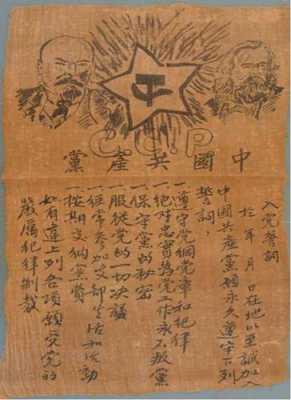 C.C.P
中國共產黨
入党誓詞
於 年 月 日在地以至誠加入
中國共產黨願永久遵守下列
誓詞
一遵守党綱党章和纪律
一绝对忠實為党工作永不叛黨
一保守黨的秘密
一服從党的一切决議
一经常参加支部生活和活動
一按期交纳黨費
如有違上列各項願受党的
嚴厲纪律制裁